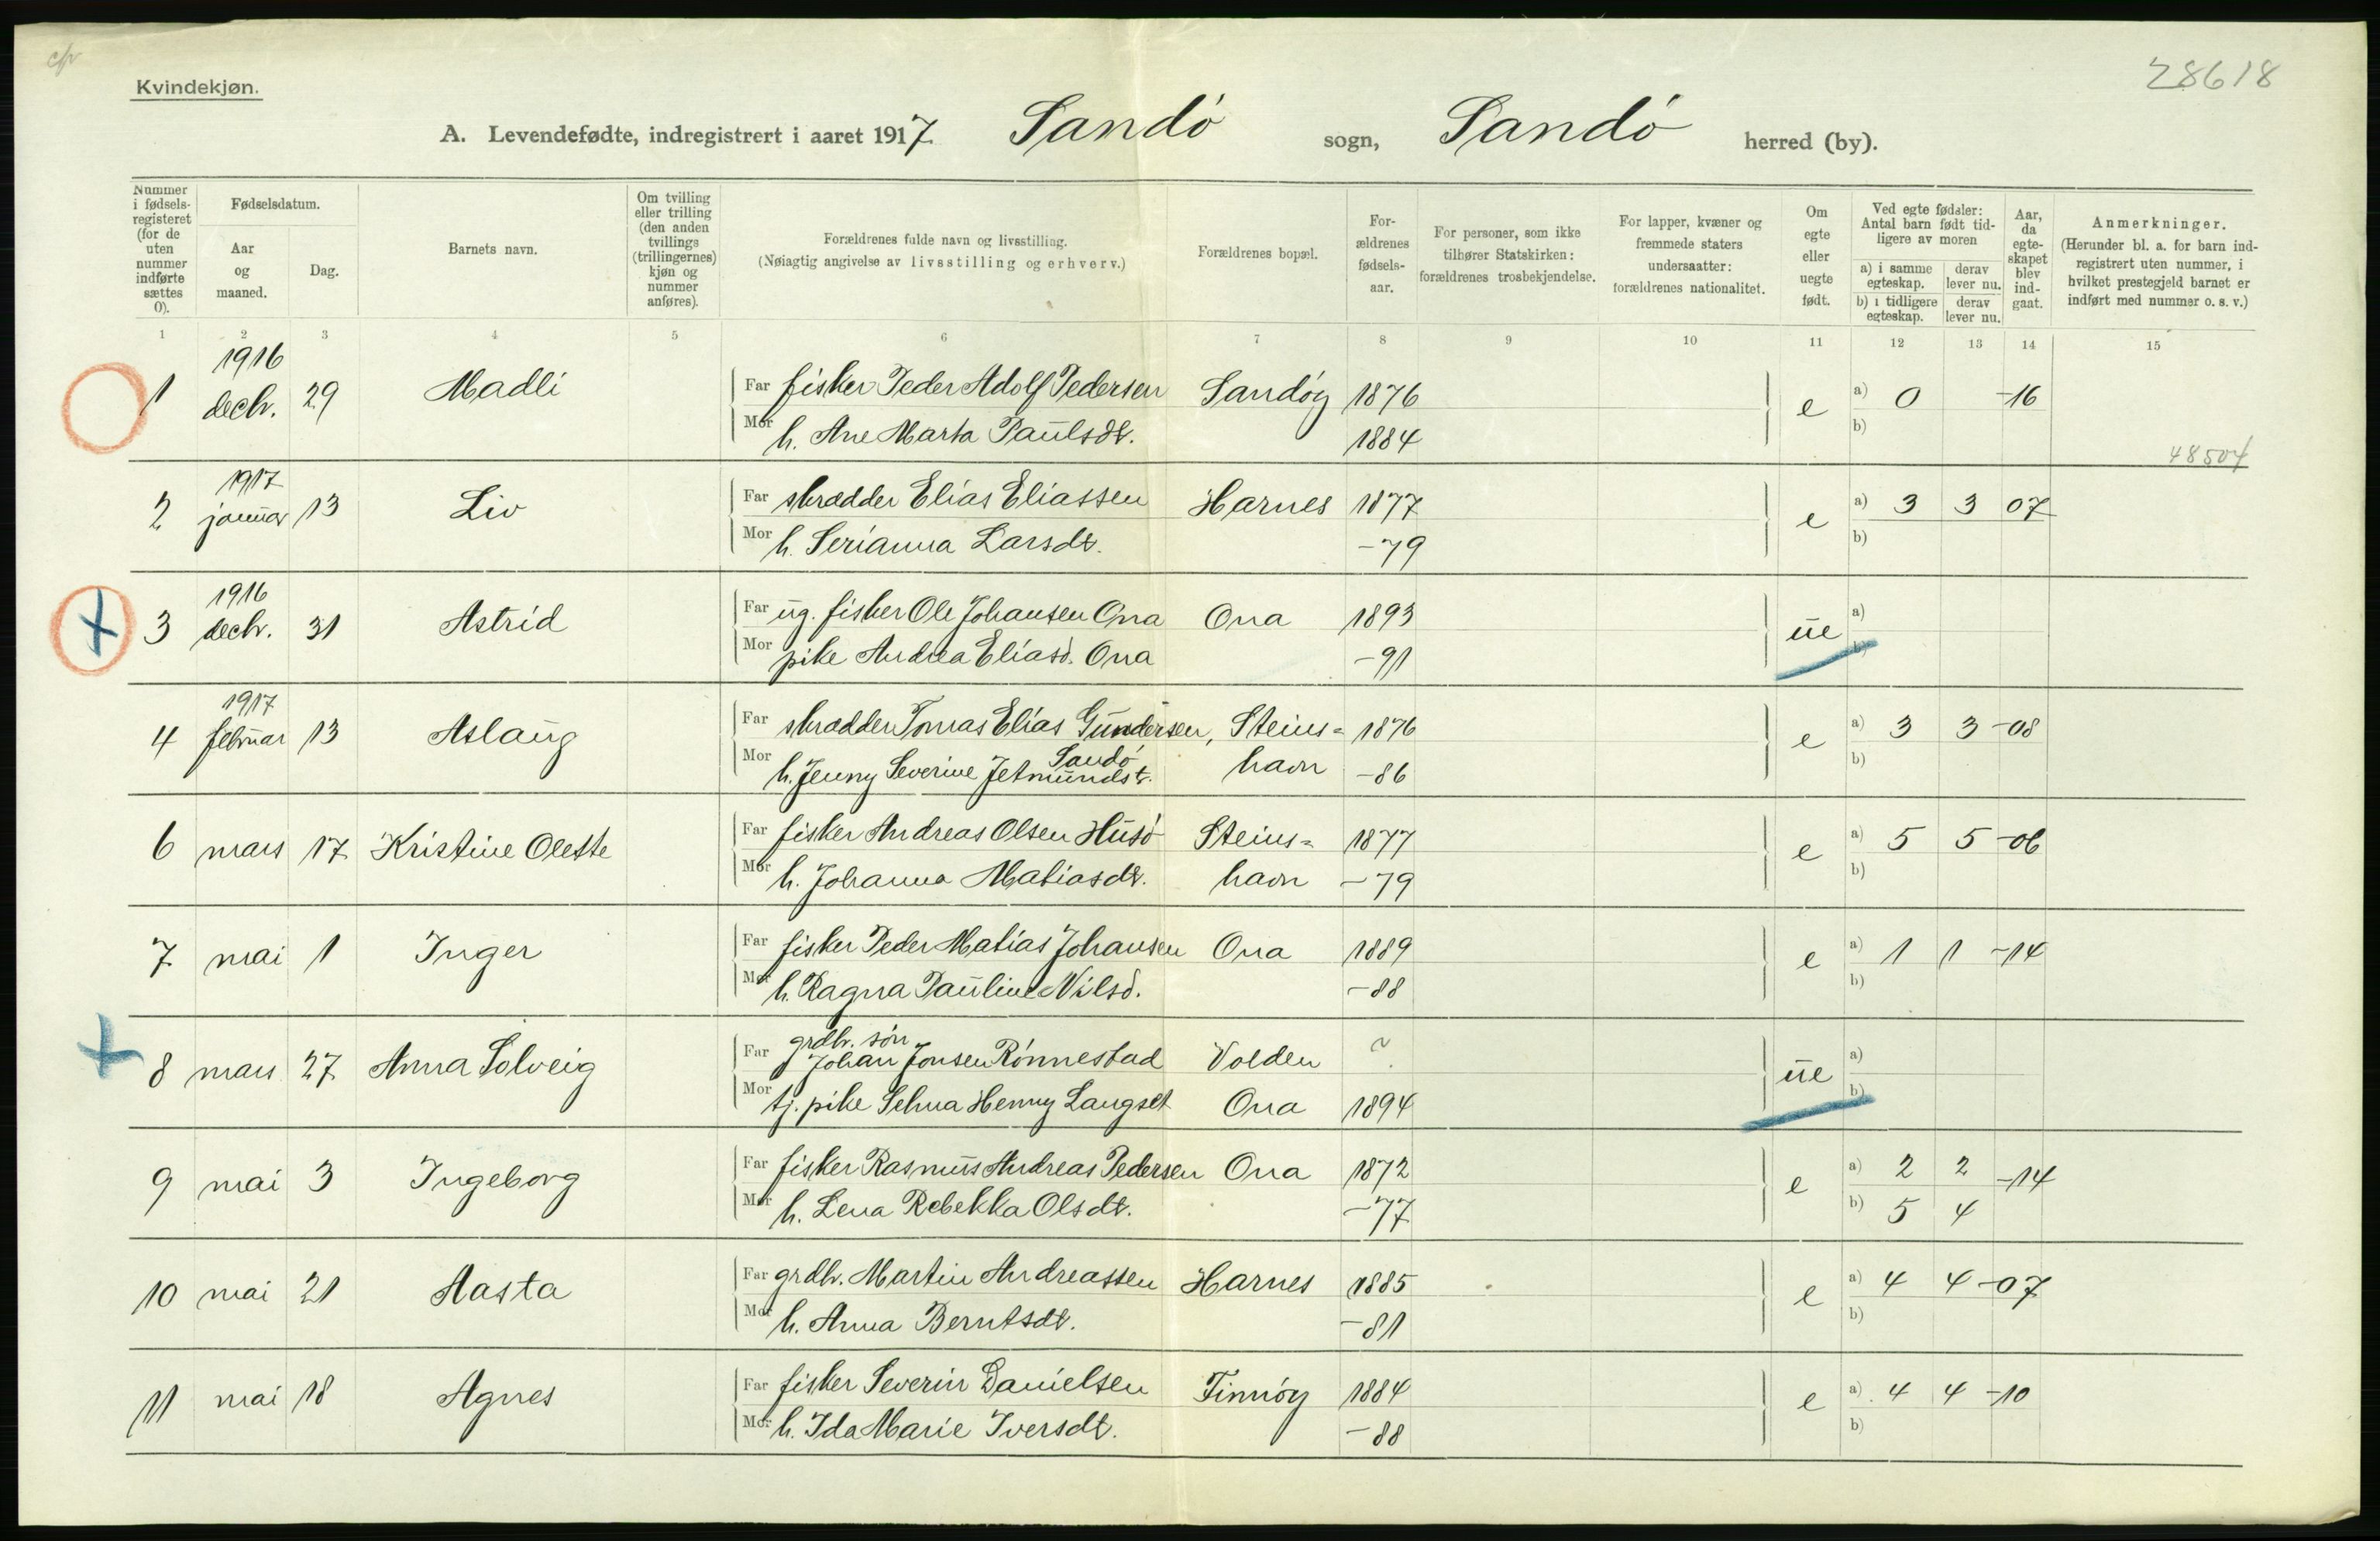 c/v
28618
Kvindekjøn.
A. Levendefødte, indregistrert i aaret 1917. Sandö sogn, Sandö herred (by).
Nummer i fødsels-registeret (for de uten nummer indførte sættes 0).
Fødselsdatum.
Aar og maaned.
Dag.
Barnets navn.
Om tvilling eller trilling (den anden tvillings (trillingernes) kjøn og nummer anføres).
Forældrenes fulde navn og livsstilling.
(Nøiagtig angivelse av livsstilling og erhverv.)
Forældrenes bopæl.
For-ældrenes fødsels-aar.
For personer, som ikke tilhører Statskirken: forældrenes trosbekjendelse.
For lapper, kvæner og fremmede staters undersaatter: forældrenes nationalitet.
Om egte eller uegte født.
Ved egte fødsler: Antal barn født tid-ligere av moren
a) i samme egteskap. derav lever nu.
b) i tidligere egteskap. derav lever nu.
Aar, da egte-skapet blev ind-gaat.
Anmerkninger.
(Herunder bl. a. for barn ind-registrert uten nummer, i hvilket prestegjeld barnet er indført med nummer o. s. v.)
1 2 3 4 5 6 7 8 9 10 11 12 13 14 15
1916
1 decbr. 29 Madli Far fisker Peder Adolf Pedersen Sandöy 1876 e a) 0 -16
Mor h. Ane Marta Paulsdt. 1884 b)
48504
1917
2 januar 13 Liv Far skrædder Elias Eliassen Harnes 1877 e a) 3 3 07
Mor h. Serianna Larsdt. -79 b)
1916
3 decbr. 31 Astrid Far ug. fisker Ole Johansen Ona Ona 1893 ue a)
Mor pike Andrea Eliasd. Ona -91 b)
1917
4 februar 13 Aslaug Far skrædder Tomas Elias Gundersen, Steins= 1876 e a) 3 3 -08
Sandö
Mor h. Jenny Severine Jetmundst. havn -86 b)
6 mars 17 Kristine Olette Far fisker Andreas Olsen Husö Steins= 1877 e a) 5 5 -06
Mor h. Johanna Matiasdt. havn -79 b)
7 mai 1 Inger Far fisker Peder Matias Johansen Ona 1889 e a) 1 1 -14
Mor h. Ragna Pauline Nilsd. -88 b)
grdbr. sön
8 mars 27 Anna Solveig Far Johan Jonsen Rönnestad Volden ? ue a)
Mor tj. pike Selma Henny Langset Ona 1894 b)
9 mai 3 Ingeborg Far fisker Rasmus Andreas Pedersen Ona 1872 e a) 2 2 -14
Mor h. Lena Rebekka Olsdt. -77 b) 5 4
10 mai 21 Aasta Far grdbr. Martin Andreassen Harnes 1885 e a) 4 4 -07
Mor h. Anna Berntsdt. -81 b)
11 mai 18 Agnes Far fisker Severin Danielsen Finnöy 1884 e a) 4 4 -10
Mor h. Ida Marie Iversdt. -88 b)